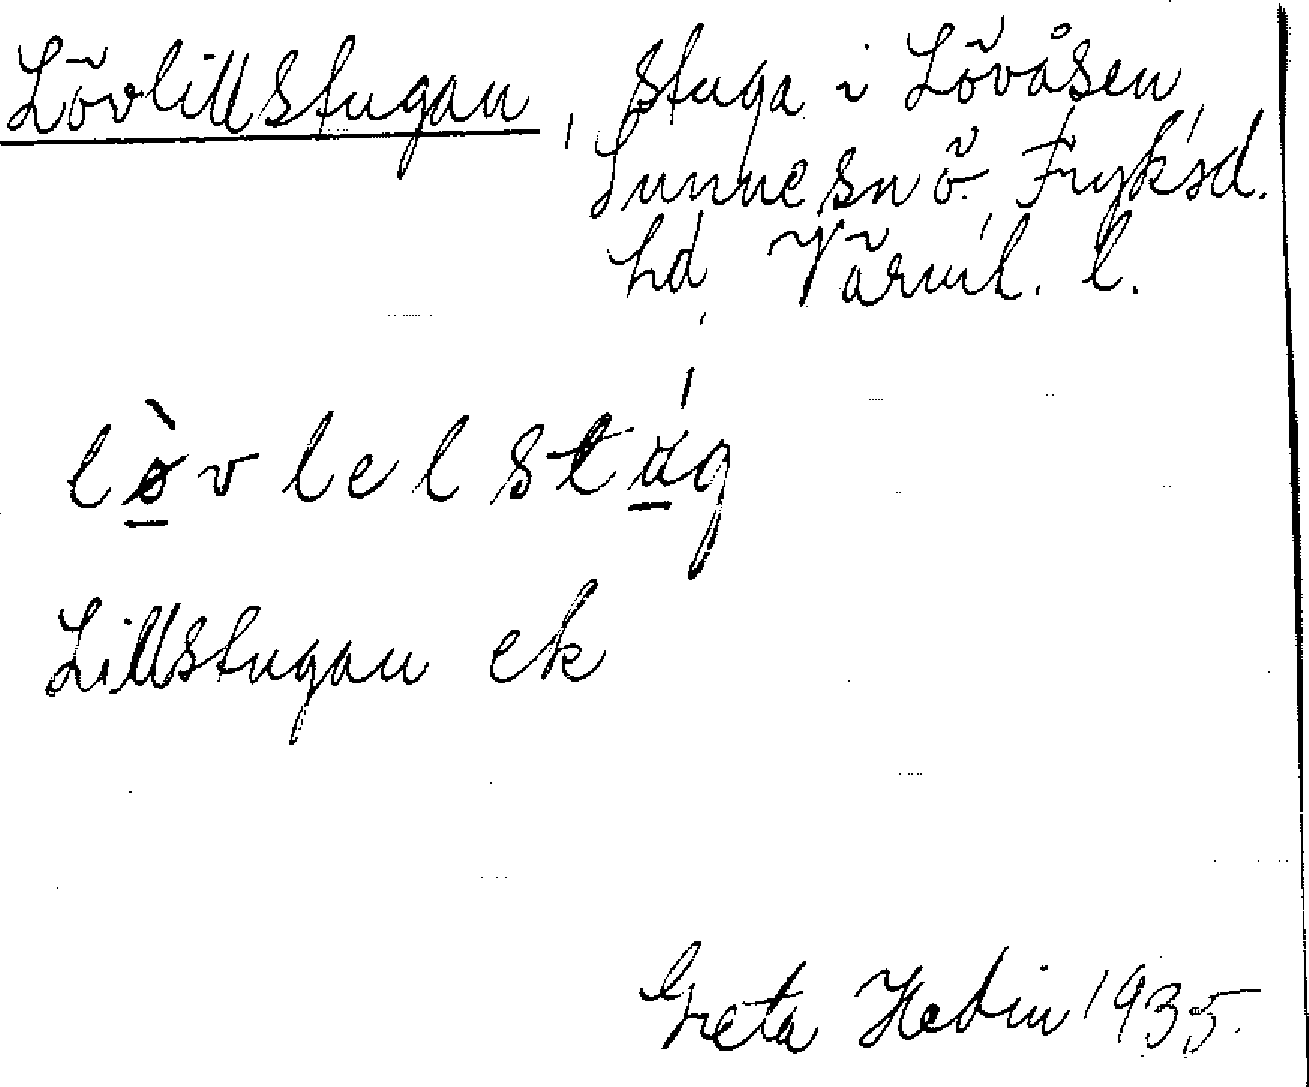 Lövlillstugan, stuga i Lövåsen
Sunne sn ö. Fryksd.
hd Värml. l.
lø̀vlelstág
Lillstugan ek
Greta Hedin 1935.